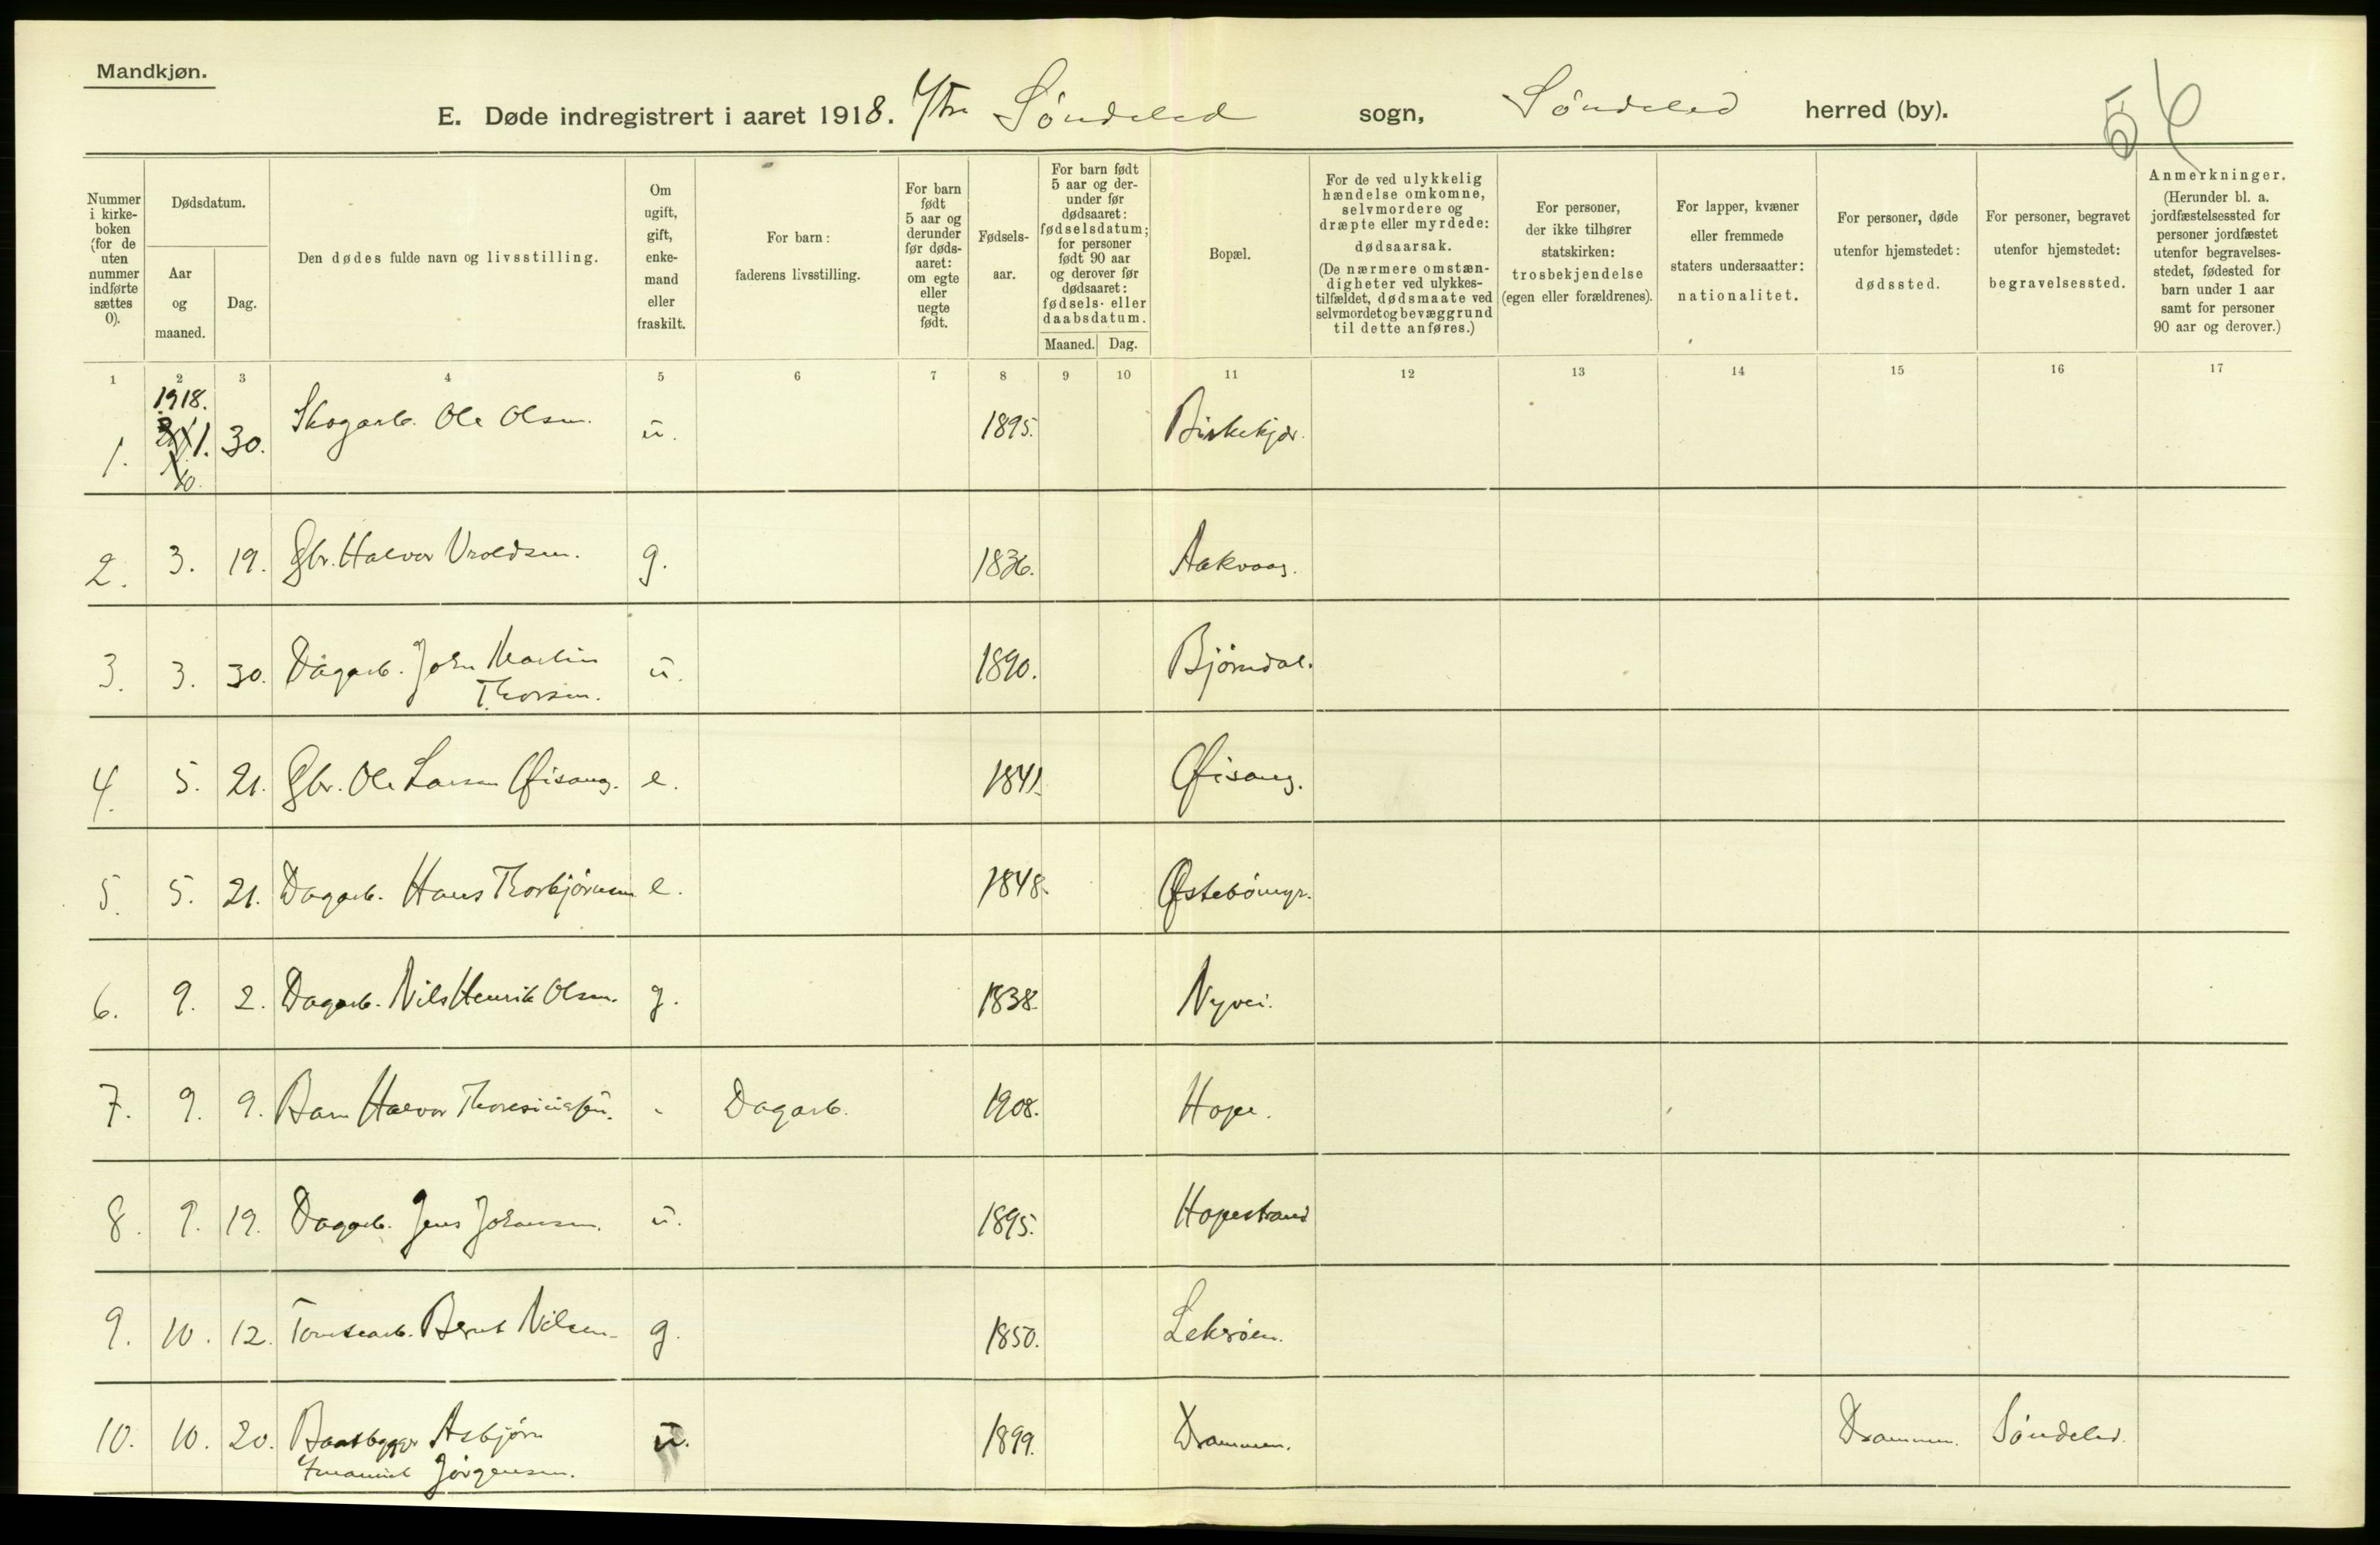 Mandkjøn.
E. Døde indregistrert i aaret 1918. Ytre Söndeled sogn, Söndeled herred (by).
Nummer i kirke-boken (for de uten nummer indførte sættes 0).
Dødsdatum.
Aar og maaned.
Dag.
Den dødes fulde navn og livsstilling.
Om ugift, gift, enke-mand eller fraskilt.
For barn: faderens livsstilling.
For barn født 5 aar og derunder før døds-aaret: om egte eller uegte født.
Fødsels-aar.
For barn født 5 aar og der-under før dødsaaret: fødselsdatum; for personer født 90 aar og derover før dødsaaret: fødsels- eller daabsdatum.
Maaned. Dag.
Bopæl.
For de ved ulykkelig hændelse omkomne, selvmordere og dræpte eller myrdede: dødsaarsak. (De nærmere omstæn-digheter ved ulykkes-tilfældet, dødsmaate ved selvmordet og bevæggrund til dette anføres.)
For personer, der ikke tilhører statskirken: trosbekjendelse (egen eller forældrenes).
For lapper, kvæner eller fremmede staters undersaatter: nationalitet.
For personer, døde utenfor hjemstedet: dødssted.
For personer, begravet utenfor hjemstedet: begravelsessted.
Anmerkninger. (Herunder bl. a. jordfæstelsessted for personer jordfæstet utenfor begravelses-stedet, fødested for barn under 1 aar samt for personer 90 aar og derover.)
1 2 3 4 5 6 7 8 9 10 11 12 13 14 15 16 17
1918.
1. 1. 30. Skogarb. Ole Olsen. u. 1895. Birkekjær.
2. 3. 19. Gbr. Halvor Vroldsen. g. 1836. Aakvaag.
3. 3. 30. Dagarb. John Martin u. 1890. Bjørndal.
Thorsen.
4. 5. 21. Gbr. Ole Larsen Øisang. e. 1841. Øisang.
5. 5. 21. Dagarb. Hans Thorbjörnsen e. 1848. Østebömyr.
6. 9. 2. Dagarb. Nils Henrik Olsen. g. 1838. Nyvei.
7. 9. 9. Barn Halvor - Dagarb. 1908. Hope.
8. 9. 19. Dagarb. Jens Johansen. u. 1895. Hopestrand
9. 10. 12. Tomtearb. Bernt Nilsen. g. 1850.
10. 10. 20. Baatbygger Asbjørn u. 1899. Drammen. Drammen. Söndeled.
Jörgensen.